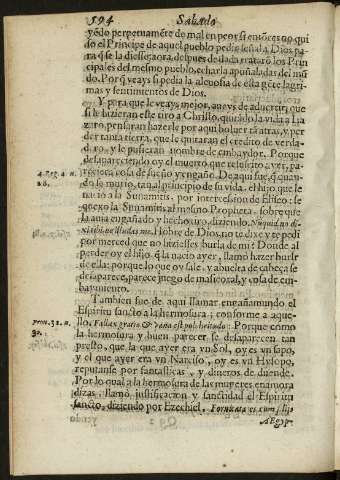 194 Sabado
yẽdo perpetuamẽte de mal en peor; si entõces no qui
do el Principe de aquel pueblo pedir señal a Dios pa
ra q̃ se la diesse; aora, despues de dada trataró los Prin
cipales del mesmo pueblo, echarla a puñaladas del mũ
do. Por q̃ veays si pedia la aleuosia de esta gẽte lagri-
mas y sentimientos de Dios.
Y para que le veays mejor, aueys de aduertir, que
si le hizieran este tiro a Christo, quitádo la vida a La
zaro, pensaran hazerle por aqui boluer ra atras, y per
der tanta tierra, que le quitaran el credito de verda-
dero, y le pusieran nombre de embaydor. Porque
desapareciendo oy el muerto que resucitò ayer, pa-
reciera cosa de sueño y engaño. De aqui fue, q̃ quan-
4. Reg. 4. n.
28.
do se murio, tan al principio de su vida, el hijo que le
nacio a la Sunamitis, por intercession de Eliseo: se
quexò la Sunamitis al mesmo Propheta, sobre que
la auia engañado y hechoura, diziendo. Nũquid no di-
xi tibi, ne illudas me. Hombre de Dios, no te dixe y te pedi
por merced que no hiziesses burla de mi? Donde al
perder oy el hijo q̃ la nacio ayer, llamò hazer burla
de ella: porque lo que oy sale, y a buelta de cabeça se
desaparece, parece juego de massecoral, y cosa de em-
baymiento.
Tambien fue de aqui llamar engañamundo el
Espiritu sancto a la hermosura; conforme a aque-
prou. 31. n.
30.
llo. Fallax gratia & vana est pulchritudo: Porque como
la hermosura y buen parecer se desaparecen tan
presto, que la que ayer era vn Sol, oy es vn sapo,
y el que ayer era vn Narciso, oy es vn Hysopo,
reputanse por fantasticas, y dineros de duende.
Por lo qual a la hermosura de las mugeres enamora
dizas, llamò, justificacion y sanctidad el Espiritu
sancto, diziendo por Ezechiel, Fornicata es cum filijs
Aegyp-